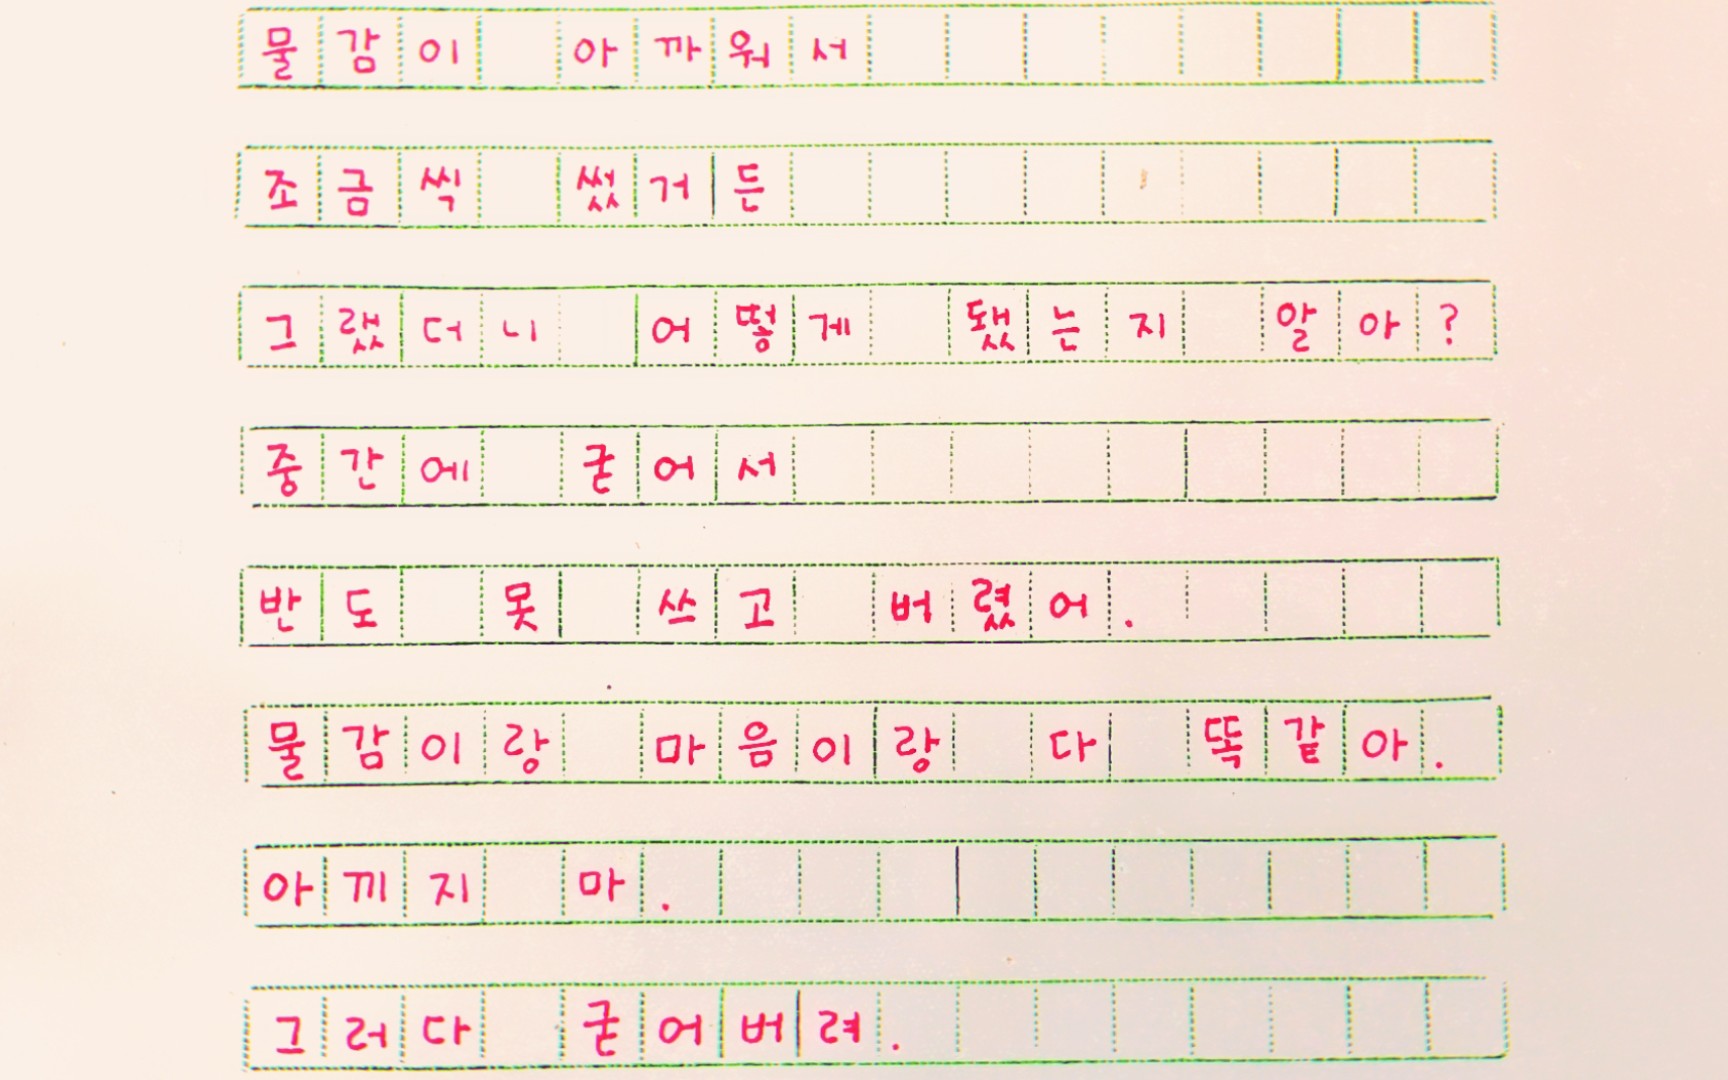 물감이 아까워서
조금씩 썼거든
그랬더니 어떻게 됐는지 알아?
중간에 굳어서
반도 못 쓰고 버렸어.
물감이랑 마음이랑 다 똑같아.
아끼지 마.
그러다 굳어버려.